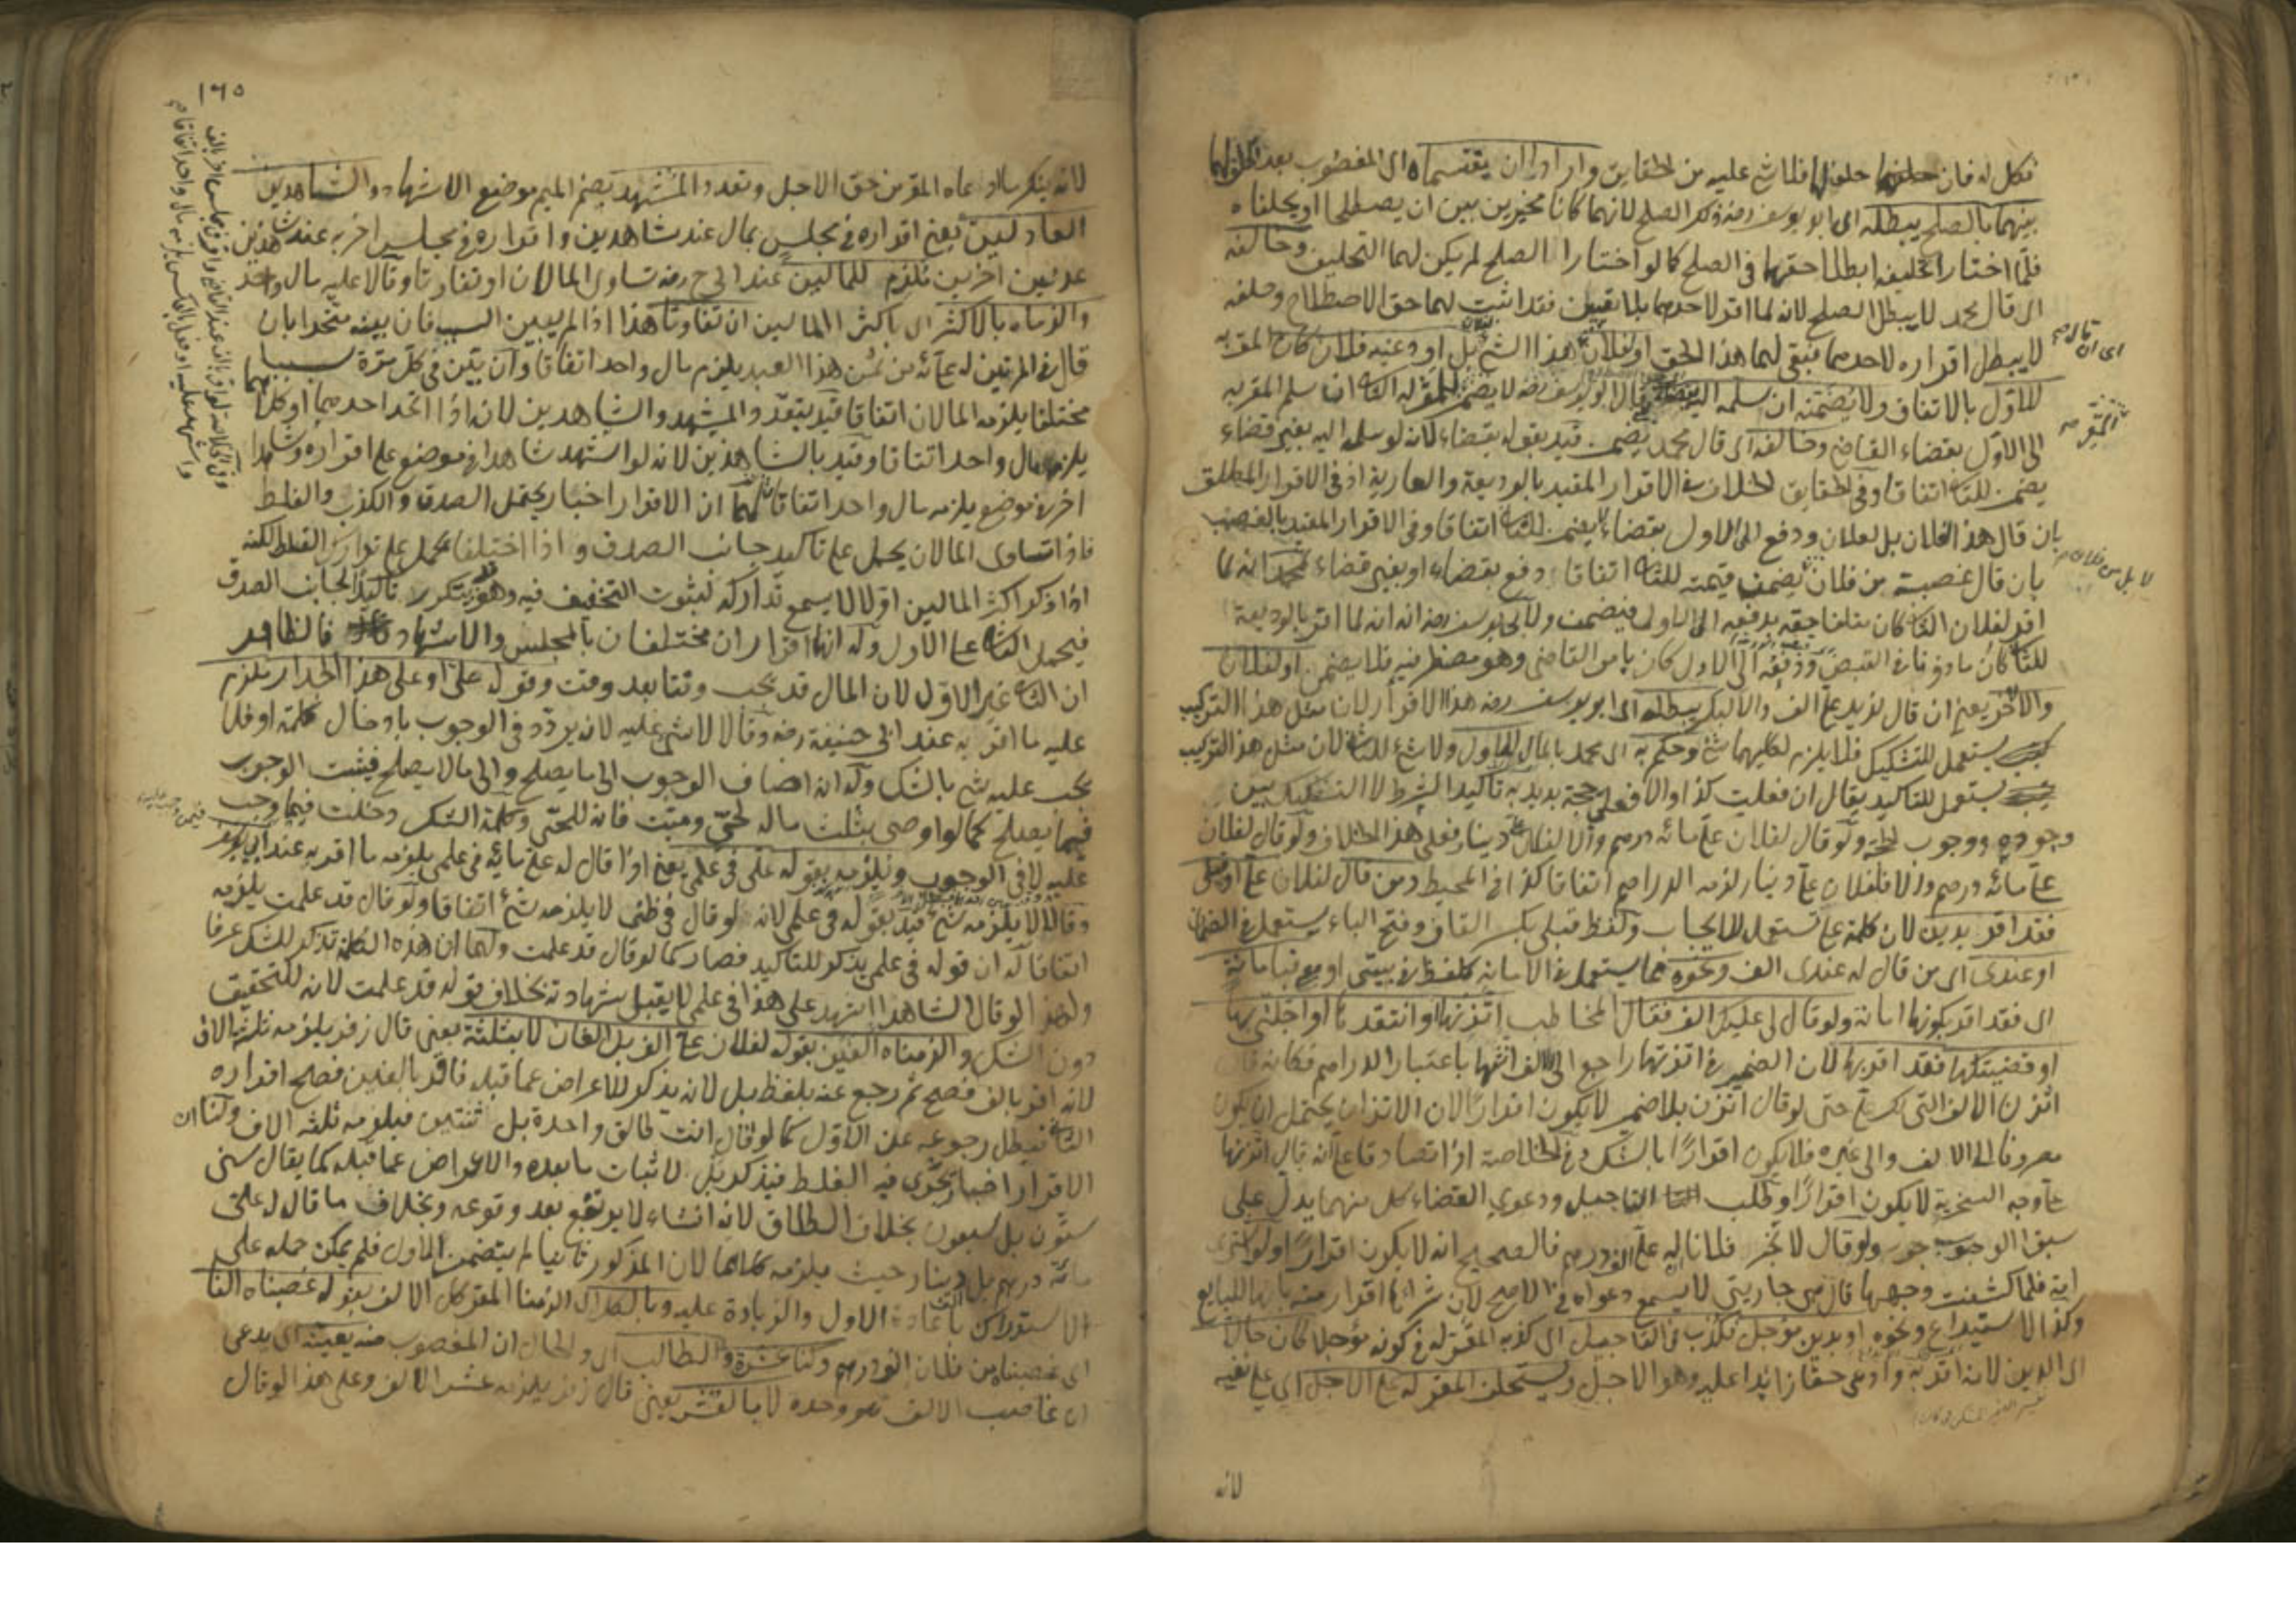 فكل له فان حلفهما حلف لها فلا شئ عليه من الحقايق وارادا ان يقتسماه اى المغصوب بعد الحلف لهما
بينهما بالصلح يبطله اى ابو يوسف رضه ذكر الصلح لانهما كانا مخيرين بين ان يصطلحا او يحلفاه
فلما اختارا تحليفه ابطلا حقهما فى الصلح كما لو اختارا الصلح لم يكن لهما التحليف وخالفه
اى قال محمد لا يبطل الصلح لانه لما اقر لاحدهما بلا تعيين فقد اثبت لهما حق الاصطلاح وحلفه
لا يبطل اقراره لاحدهما فبقى لهما هذا الحق او لفلان هذا الشئ بل او دعنيه فلان كان المقر به
للاول بالاتفاق ولا يضمنه ان سلمه قال ابو يوسف رضه لا يضمن المقر له الثانى ان سلم المقر به
الى الاول بقضاء القاضى وخالفه اى قال محمد يضمن قيد بقوله بقضاء لانه لو سلمه اليه بغير قضاء
يضمن للثانى اتفاقا وفى الحقايق الخلاف فى الاقرار المقيد بالوديعة والعارية اذ فى الاقرار المطلق
بان قال هذا لفلان بل لفلان ودفع الى الاول بقضاء لا يضمن للثانى اتفاقا وفى الاقرار المقيد بالغصب
بان قال غصبته من فلان يضمن قيمته للثانى اتفاقا دفع بقضاء او بغير قضاء لمحمد انه لما
اقر لفلان الثانى كان متلفا حقه بدفعه الى الاول فيضمن ولابى يوسف رضه انه لما اقر بالوديعة
للثانى كان ماذونا فى القبض ودفعه الى الاول كان بامر القاضى وهو مضطر فيه فلا يضمن او لفلان
والآخر يعنى ان قال لزيد على الف والا لبكر يبطله اى ابو يوسف رضه هذا الاقرار لان مثل هذا التركيب
يستعمل للتشكيك فلا يلزم لكليهما شئ وحكم به اى محمد بالمال للاول ولا شئ للثانى لان مثل هذا التركيب
يستعمل للتاكيد يقال ان فعلت كذا والا فعلى حجة يريد به تاكيد الشرط لا التشكيك بين
وجوده ووجوب الحجة ولو قال لفلان على مائة درهم والا لفلان دينار فعلى هذا الخلاف ولو قال لفلان
على مائة درهم والا فلفلان على دينار لزمه الدراهم اتفاقا كذا فى المحيط ومن قال لفلان على او قبلى
فقد اقر بدين لان كلمة على تستعمل للايجاب ولفظ قبلى بكسر القاف وفتح الباء يستعمل فى الضمان
او عندى اى من قال له عندى الف ونحوه مما يستعمل فى الامانة كلفظ فى بيتى او مع فبامانة
اى فقد اقر بكونها امانة ولو قال لى عليك الف فقال المخاطب اتزنها او انتقدها او اجلنى بها
او قضيتكها فقد اقر بها لان الضمير فى اتزنها راجع الى الالف انثها باعتبار الدراهم فكانه قال
اتزن الالف التى لك على حتى لو قال اتزن بلا ضمير لا يكون اقرارا لان الاتزان يحتمل ان يكون
مصروفا الى الالف والى غيره فلا يكون اقرارا بالشك وفى الخلاصة اذا تصادقا على انه قال اتزنها
على وجه السخرية لا يكون اقرارا وطلب التاجيل ودعوى القضاء كل منهما يدل على
سبق الوجوب ولو قال لا تخبر فلانا له على الف درهم فالصحيح انه لا يكون اقرارا ولو اشترى
امة فلما كشفت وجهها قال هى جاريتى لا يسمع دعواه فى الاصح لان شراءها اقرار منه بانها للبايع
وكذا الاستيداع ونحوه او بدين مؤجل فكذب فى التاجيل اى كذبه المقر له فى كونه مؤجلا كان حالا
اى الدين لانه اقر به وادعى حقا زائدا عليه وهو الاجل ويستحلف المقر له على الاجل اى على نفيه
لانه
اى ان قال م
لا بل من فلان م
١٦٥
لانه ينكر ما ادعاه المقر من حق الاجل وتعدد المشهد بضم الميم موضع الاشهاد والشاهدين
العادلين يعنى اقراره فى مجلس بمال عند شاهدين واقراره فى مجلس اخر به عند شاهدين
عدلين اخرين ملزم للمالين عند ابى ح رضه تساوى المالان او تفاوتا وقالا عليه مال واحد
والزماه بالاكثر اى باكثر المالين ان تفاوتا هذا اذا لم يبين السبب فان بينه متحدا بان
قال فى المرتين له مائة من ثمن هذا العبد يلزم مال واحد اتفاقا وان بين فى كل مرة سببا
مختلفا يلزمه المالان اتفاقا قيد بتعدد المشهد والشاهدين لانه اذا اتحد احدهما او كلاهما
يلزمه مال واحد اتفاقا وقيد بالشاهدين لانه لو استشهد شاهدا فى موضع على اقراره وشاهدا
اخر فى موضع يلزمه مال واحد اتفاقا لهما ان الاقرار اخبار يحتمل الصدق والكذب والغلط
فاذا تساوى المالان يحمل على تاكيد جانب الصدق واذا اختلفا يحمل على تدارك الغلط لكنه
اذا ذكر اكثر المالين اولا لا يسمع تداركه لثبوت التخفيف فيه وهو يتكرر تاكيدا لجانب الصدق
فيحمل الثانى على الاول وله انهما اقراران مختلفان بالمجلس والاشهاد فالظاهر
ان الثانى غير الاول لان المال قد يجب وقتا بعد وقت وقوله على او على هذا الجدار ملزم
عليه ما اقر به عند ابى حنيفة رضه وقالا لا شئ عليه لانه يردد فى الوجوب بادخال كلمة او فلا
يجب عليه شئ بالشك وله انه اضاف الوجوب الى ما يصلح والى ما لا يصلح فيثبت الوجوب
فيما يصلح كما لو اوصى بثلث ماله لحى وميت فانه للحى وكلمة الشك دخلت فيما وجب
عليه لا فى الوجوب ويلزمه بقوله على فى علمى يعنى اذا قال له على مائة فى علمى يلزمه ما اقر به عند ابى يوسف
وقالا لا يلزمه شئ قيد بقوله فى علمى لانه لو قال فى ظنى لا يلزمه شئ اتفاقا ولو قال قد علمت يلزمه
اتفاقا له ان قوله فى علمى يذكر للتاكيد فصار كما لو قال قد علمت ولهما ان هذه الكلمة تذكر للشك عرفا
ولهذا لو قال الشاهد اشهد على هذا فى علمى لا يقبل شهادته بخلاف قوله قد علمت لانه للتحقيق
دون الشك والزمناه الفين بقوله لفلان على الف بل الفان لا بثلثة يعنى قال زفر يلزمه ثلثة الاف
لانه اقر بالف فصح ثم رجع عنه بلفظ بل لانه يذكر للاعراض عما قبله فاقر بالفين فصح اقراره
الثانى فيبطل رجوعه عن الاول كما لو قال انت طالق واحدة بل ثنتين فيلزمه ثلثة الاف ولنا ان
الاقرار اخبار يجرى فيه الغلط فيذكر بل لاثبات ما بعده والاعراض عما قبله كما يقال سنى
ستون بل سبعون بخلاف الطلاق لانه انشاء لا يرتفع بعد وقوعه وبخلاف ما قال له على
مائة درهم بل دينار حيث يلزمه كلاهما لان المذكور ثانيا لم يتضمن الاول فلم يمكن حمله على
الاستدراك باعادة الاول والزيادة عليه وبالكل اى الزمنا المقر كل الالف بقوله غصبناه الفا
اى غصبناه من فلان الف درهم وكنا عشرة والطالب اى والحال ان المغصوب منه يعينه اى يدعى
ان غاصب الالف هو وحده لا بالعشر يعنى قال زفر يلزمه عشر الالف وعلى هذا لو قال